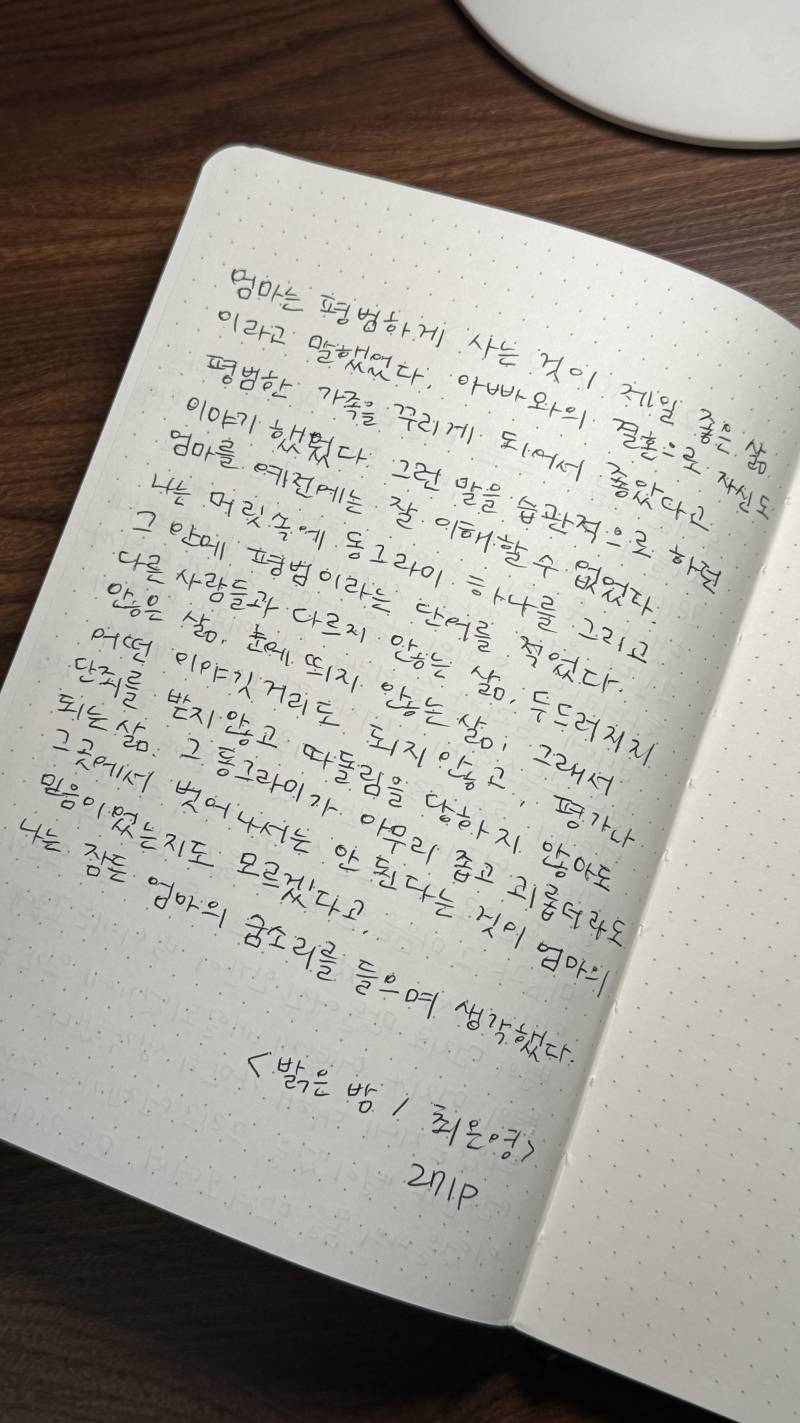 엄마는 평범하게 사는 것이 제일 좋은 삶
이라고 말했었다. 아빠와의 결혼으로 자신도
평범한 가족을 꾸리게 되어서 좋았다고
이야기 했었다. 그런 말을 습관적으로 하던
엄마를 예전에는 잘 이해할 수 없었다.
나는 머릿속에 동그라미 하나를 그리고
그 안에 평범이라는 단어를 적었다.
다른 사람들과 다르지 않는 삶, 두드러지지
않은 삶, 눈에 띄지 않는 삶, 그래서
어떤 이야깃거리도 되지 않고, 평가나
단죄를 받지 않고 따돌림을 당하지 않아도
되는 삶. 그 동그라미가 아무리 좁고 괴롭더라도
그곳에서 벗어나서는 안 된다는 것이 엄마의
믿음이었는지도 모르겠다고,
나는 잠든 엄마의 숨소리를 들으며 생각했다.
<밝은 밤 / 최은영>
271p